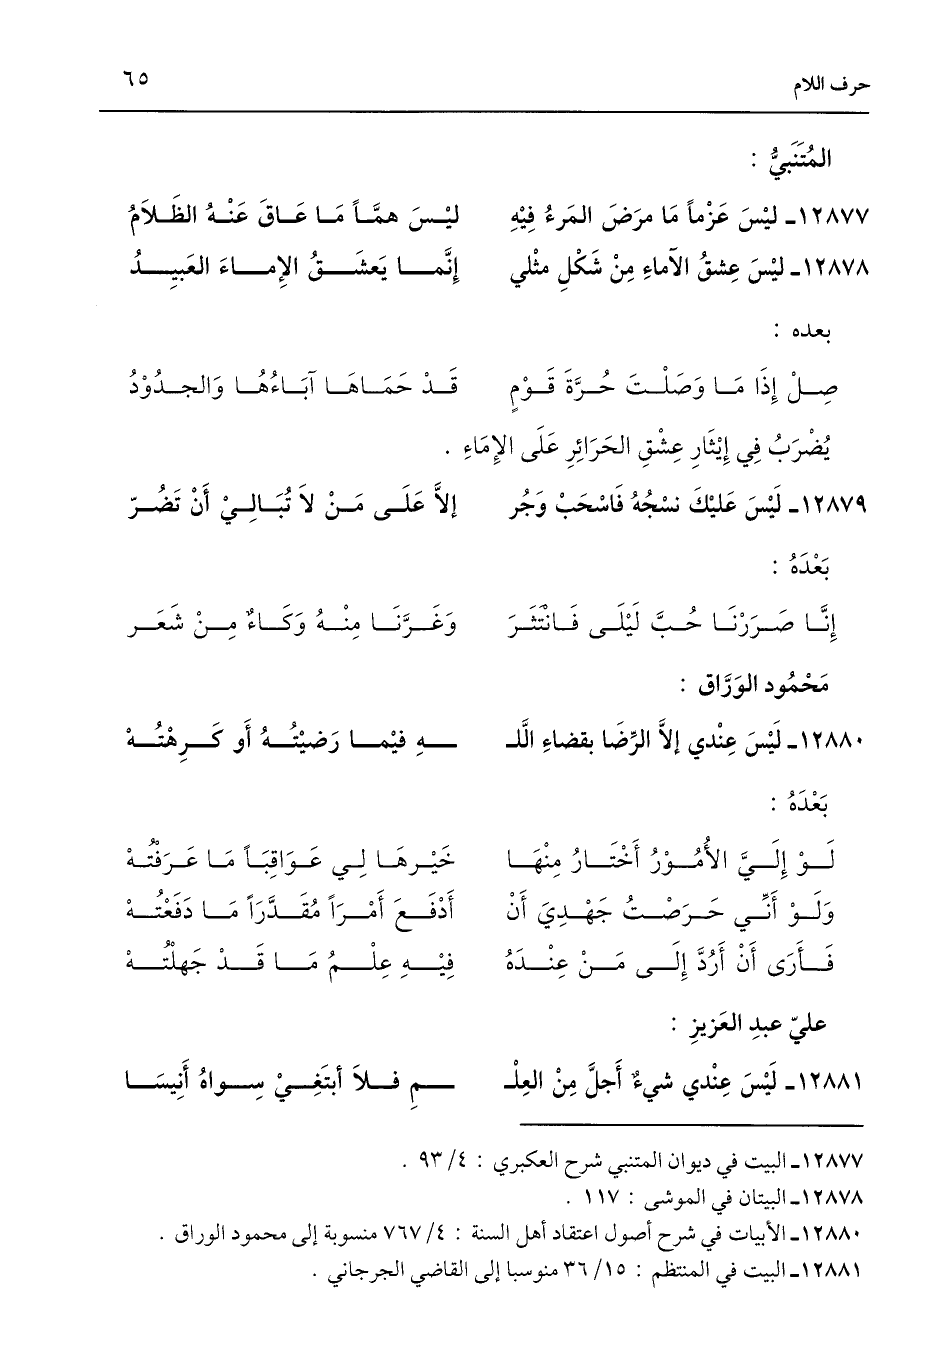 حرف اللام ٦٥
المُتَنَبِيُّ :
١٢٨٧٧ـ لَيْسَ عَزْماً مَا مرَضَ المَرءُ فِيْهِ لَيْـسَ همَّـاً مَـا عَـاقَ عَنْـهُ الظَـلاَمُ
١٢٨٧٨ـ لَيْسَ عِشقُ الآماءِ مِنْ شَكْلِ مثْلي إنَّمـــا يَعشَـــقُ الإمــاءَ العَبِيـــدُ
بعده :
صِــلْ إِذَا مَـا وَصَلْـتَ حُـرَّةَ قَـوْمٍ قَـدْ حَمَـاهَـا آبَـاءُهُـا وَالجـدُوْدُ
يُضْرَبُ فِي إِيْثَارِ عِشْقِ الحَرَائِرِ عَلَى الإِمَاءِ .
١٢٨٧٩ـ لَيْسَ عَلَيْكَ نسْجُهُ فَاسْحَبْ وَجُر إلاَّ عَلَـى مَـنْ لاَ تُبَـالِـيْ أنْ تَضُـرّ
بَعْدَهُ :
إِنَّـا صَـرَرْنَـا حُـبَّ لَيْلَـى فَـانْتَثَـرَ وَغَـرَّنَـا مِنْـهُ وَكَـاءٌ مِـنْ شَعَـر
مَحْمُود الوَرَّاق :
١٢٨٨٠ـ لَيْسَ عِنْدي إلاَّ الرِّضَا بقضاءِ اللَّـ ــهِ فيْمـا رَضيْتُـهُ أو كَـرِهْتُـهْ
بَعْدَهُ :
لَـوْ إِلَـيَّ الأُمُـوْرُ أَخْتَـارُ مِنْهَـا خَيْـرهَـا لِـي عَـوَاقِبَـاً مَـا عَـرَفْتُـهْ
وَلَـوْ أَنِّـي حَـرَصْـتُ جَهْـدِيَ أَنْ أَدْفَـعَ أَمْـرَاً مُقَـدَّرَاً مَـا دَفَعْتُـهْ
فَـأَرَى أَنْ أَرُدَّ إِلَـى مَـنْ عِنْـدَهُ فِيْـهِ عِلْـمُ مَـا قَـدْ جَهلْتُـهْ
عليّ عبدِ العَزيزِ :
١٢٨٨١ـ لَيْسَ عِنْدي شيءٌ أَجلَّ مِنْ العِلْـ ــمِ فـلاَ أبتَغِـيْ سِـواهُ أَنِيسَـا
١٢٨٧٧ـ البيت في ديوان المتنبي شرح العكبري : ٤/ ٩٣ .
١٢٨٧٨ـ البيتان في الموشى : ١١٧ .
١٢٨٨٠ـ الأبيات في شرح أصول اعتقاد أهل السنة : ٤/ ٧٦٧ منسوبة إلى محمود الوراق .
١٢٨٨١ـ البيت في المنتظم : ١٥/ ٣٦ منوسبا إلى القاضي الجرجاني .